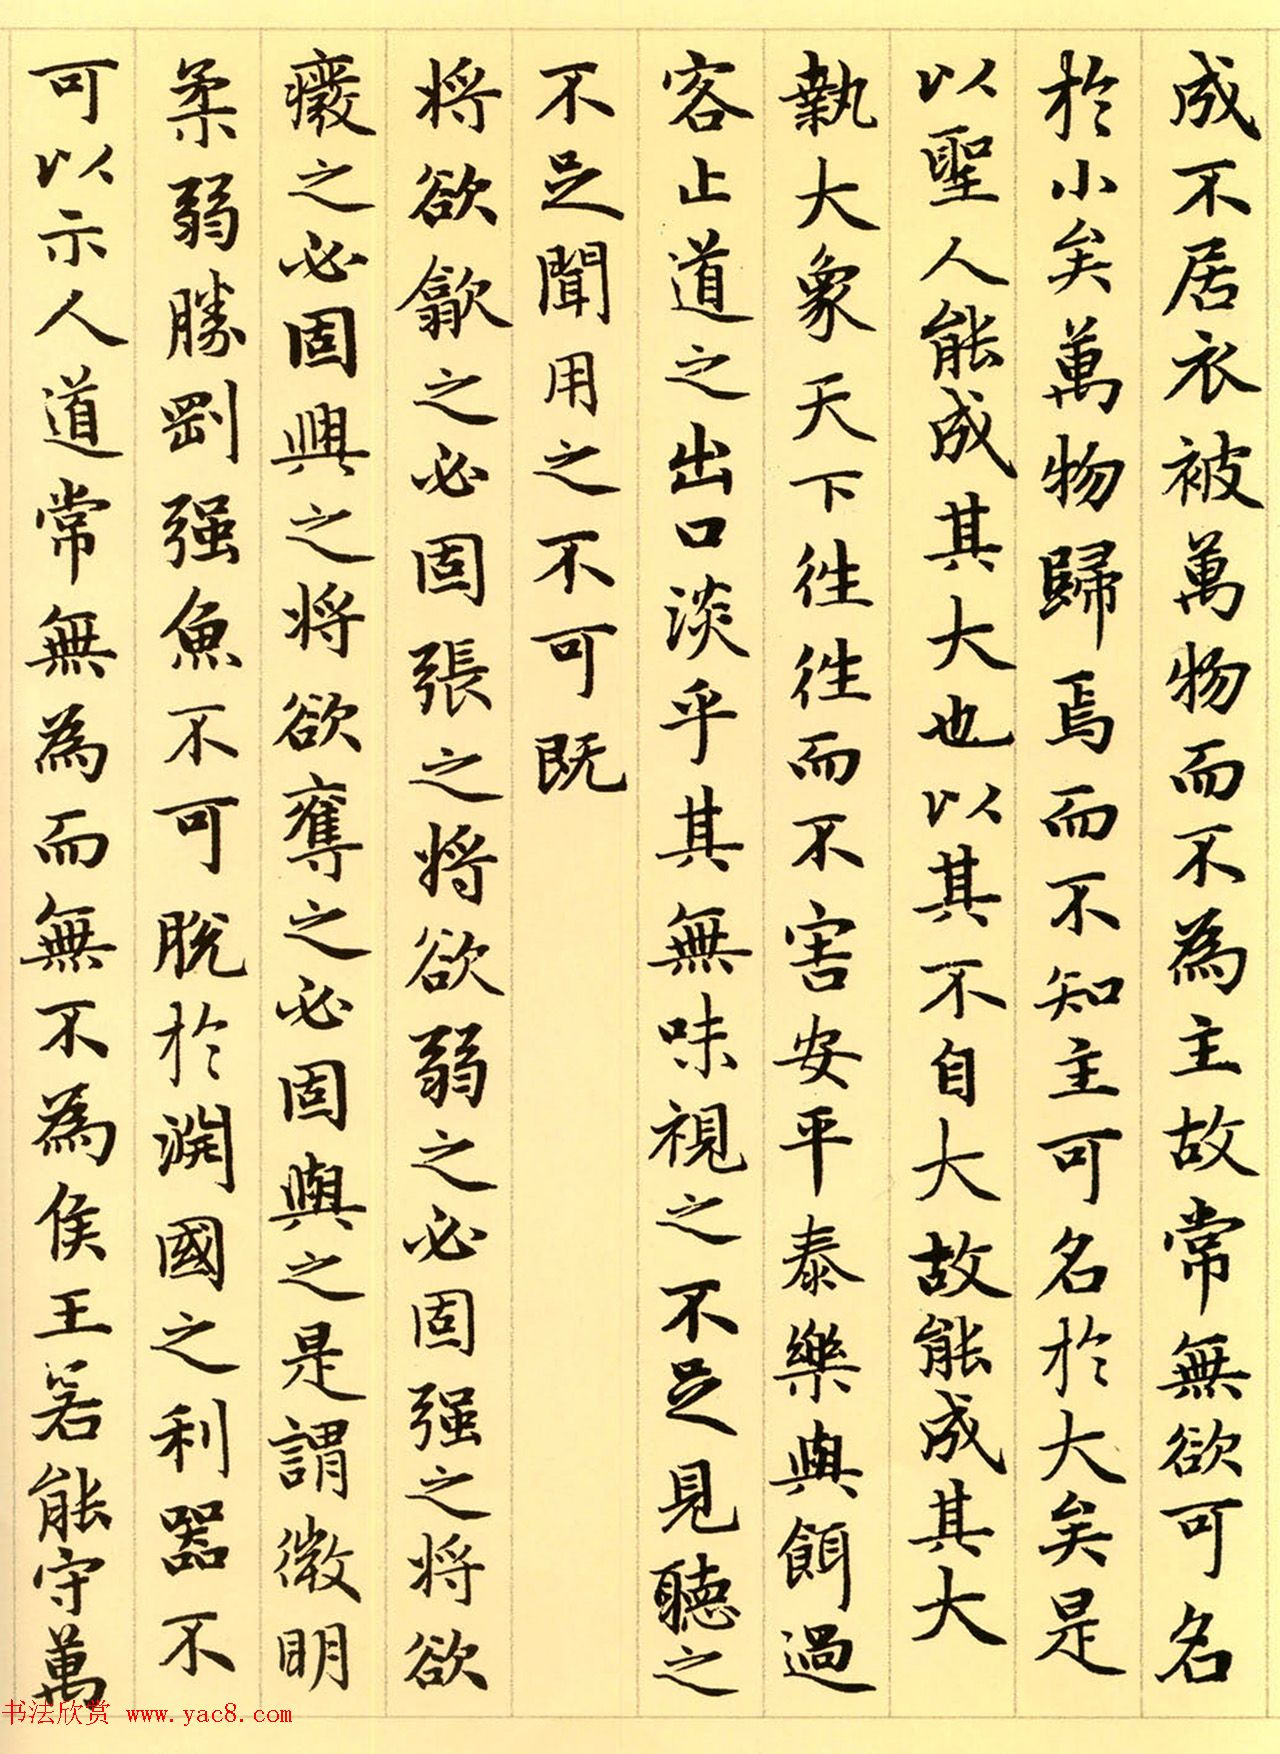 成不居衣被萬物而不為主故常無欲可名
於小矣萬物歸焉而不知主可名於大矣是
以聖人能成其大也以其不自大故能成其大
執大象天下往往而不害安平泰樂與餌過
客止道之出口淡乎其無味視之不足見聽之
不足聞用之不可既
將欲歙之必固張之將欲弱之必固强之將欲
癈之必固興之將欲奪之必固與之是謂微明
柔弱勝剛强魚不可脫於淵國之利器不
可以示人道常無為而無不為侯王若能守萬
书法欣赏 www.yac8.com